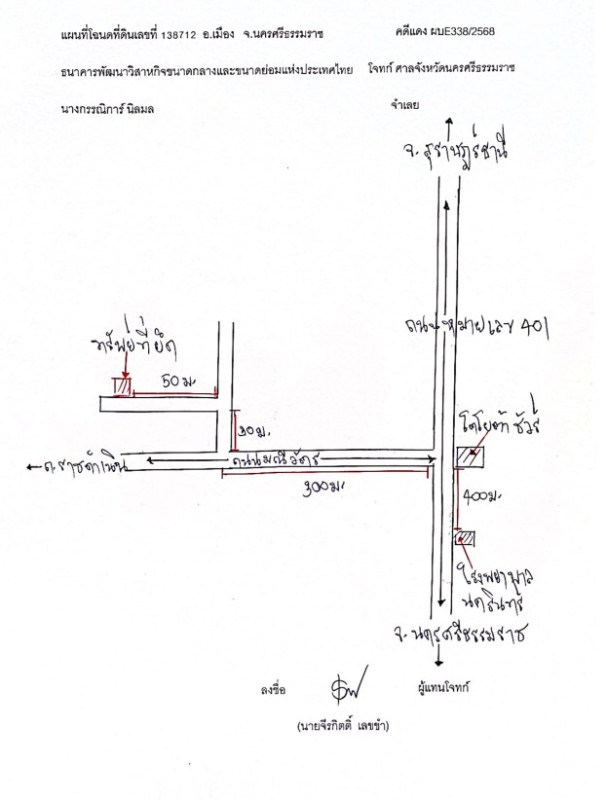 แผนที่โฉนดที่ดินเลขที่ 138712 อ.เมือง จ.นครศรีธรรมราช คดีแดง ผบE338/2568
ธนาคารพัฒนาวิสาหกิจขนาดกลางและขนาดย่อมแห่งประเทศไทย โจทก์ ศาลจังหวัดนครศรีธรรมราช
นางกรรณิการ์ นิลมล จำเลย
จ. สุราษฎร์ธานี
ถนนหมายเลข 401
ทรัพย์ที่ยึด
50 ม.
โตโยต้า ชัวร์
30 ม.
ถ.ราชดำเนิน
ถนนมณีวัตร
300 ม.
400 ม.
โรงพยาบาล
นครินทร์
จ. นครศรีธรรมราช
ลงชื่อ ผู้แทนโจทก์
(นายจีรกิตติ์ เลขขำ)